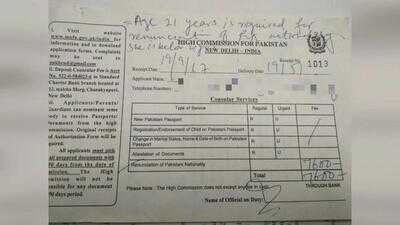 Age 21 years is required for
renunciation of Pak nationality
She is below
HIGH COMMISSION FOR PAKISTAN
NEW DELHI – INDIA
Receipt Date
19/9/17
Delivery Date
Receipt No
1013
Applicant
Telephone
Consular Services
Type of Service Regular Urgent Fee
New Pakistani Passport R U
Registration/Endorsement of Child on Pakistani Passport R U
Change in Marital Status, Name & Date of Birth on Pakistani Passport R U
Attestation of Documents R U
Renunciation of Pakistani Nationality 7600
Total 7600
Please Note : The High Commission does not accept any
THROUGH BANK
Name of Official on Duty:
i. Visit website
www.mofa.gov.pk/india for
information and to download
application forms. Complaints
may be sent to
ii. Deposit Consular Fee in Acct
in Standard
Charter Bank branch located at
Marg, Chanakyapuri,
New Delhi
Applicants/Parents/
Guardians can nominate some
body to receive Passports/
documents from the high
commission. Original receipts
of Authorization Form will be
required.
All applicants must pick
all prepared documents with
90 days from the date of
The High
mission will not be
responsible for any document
90 days period.